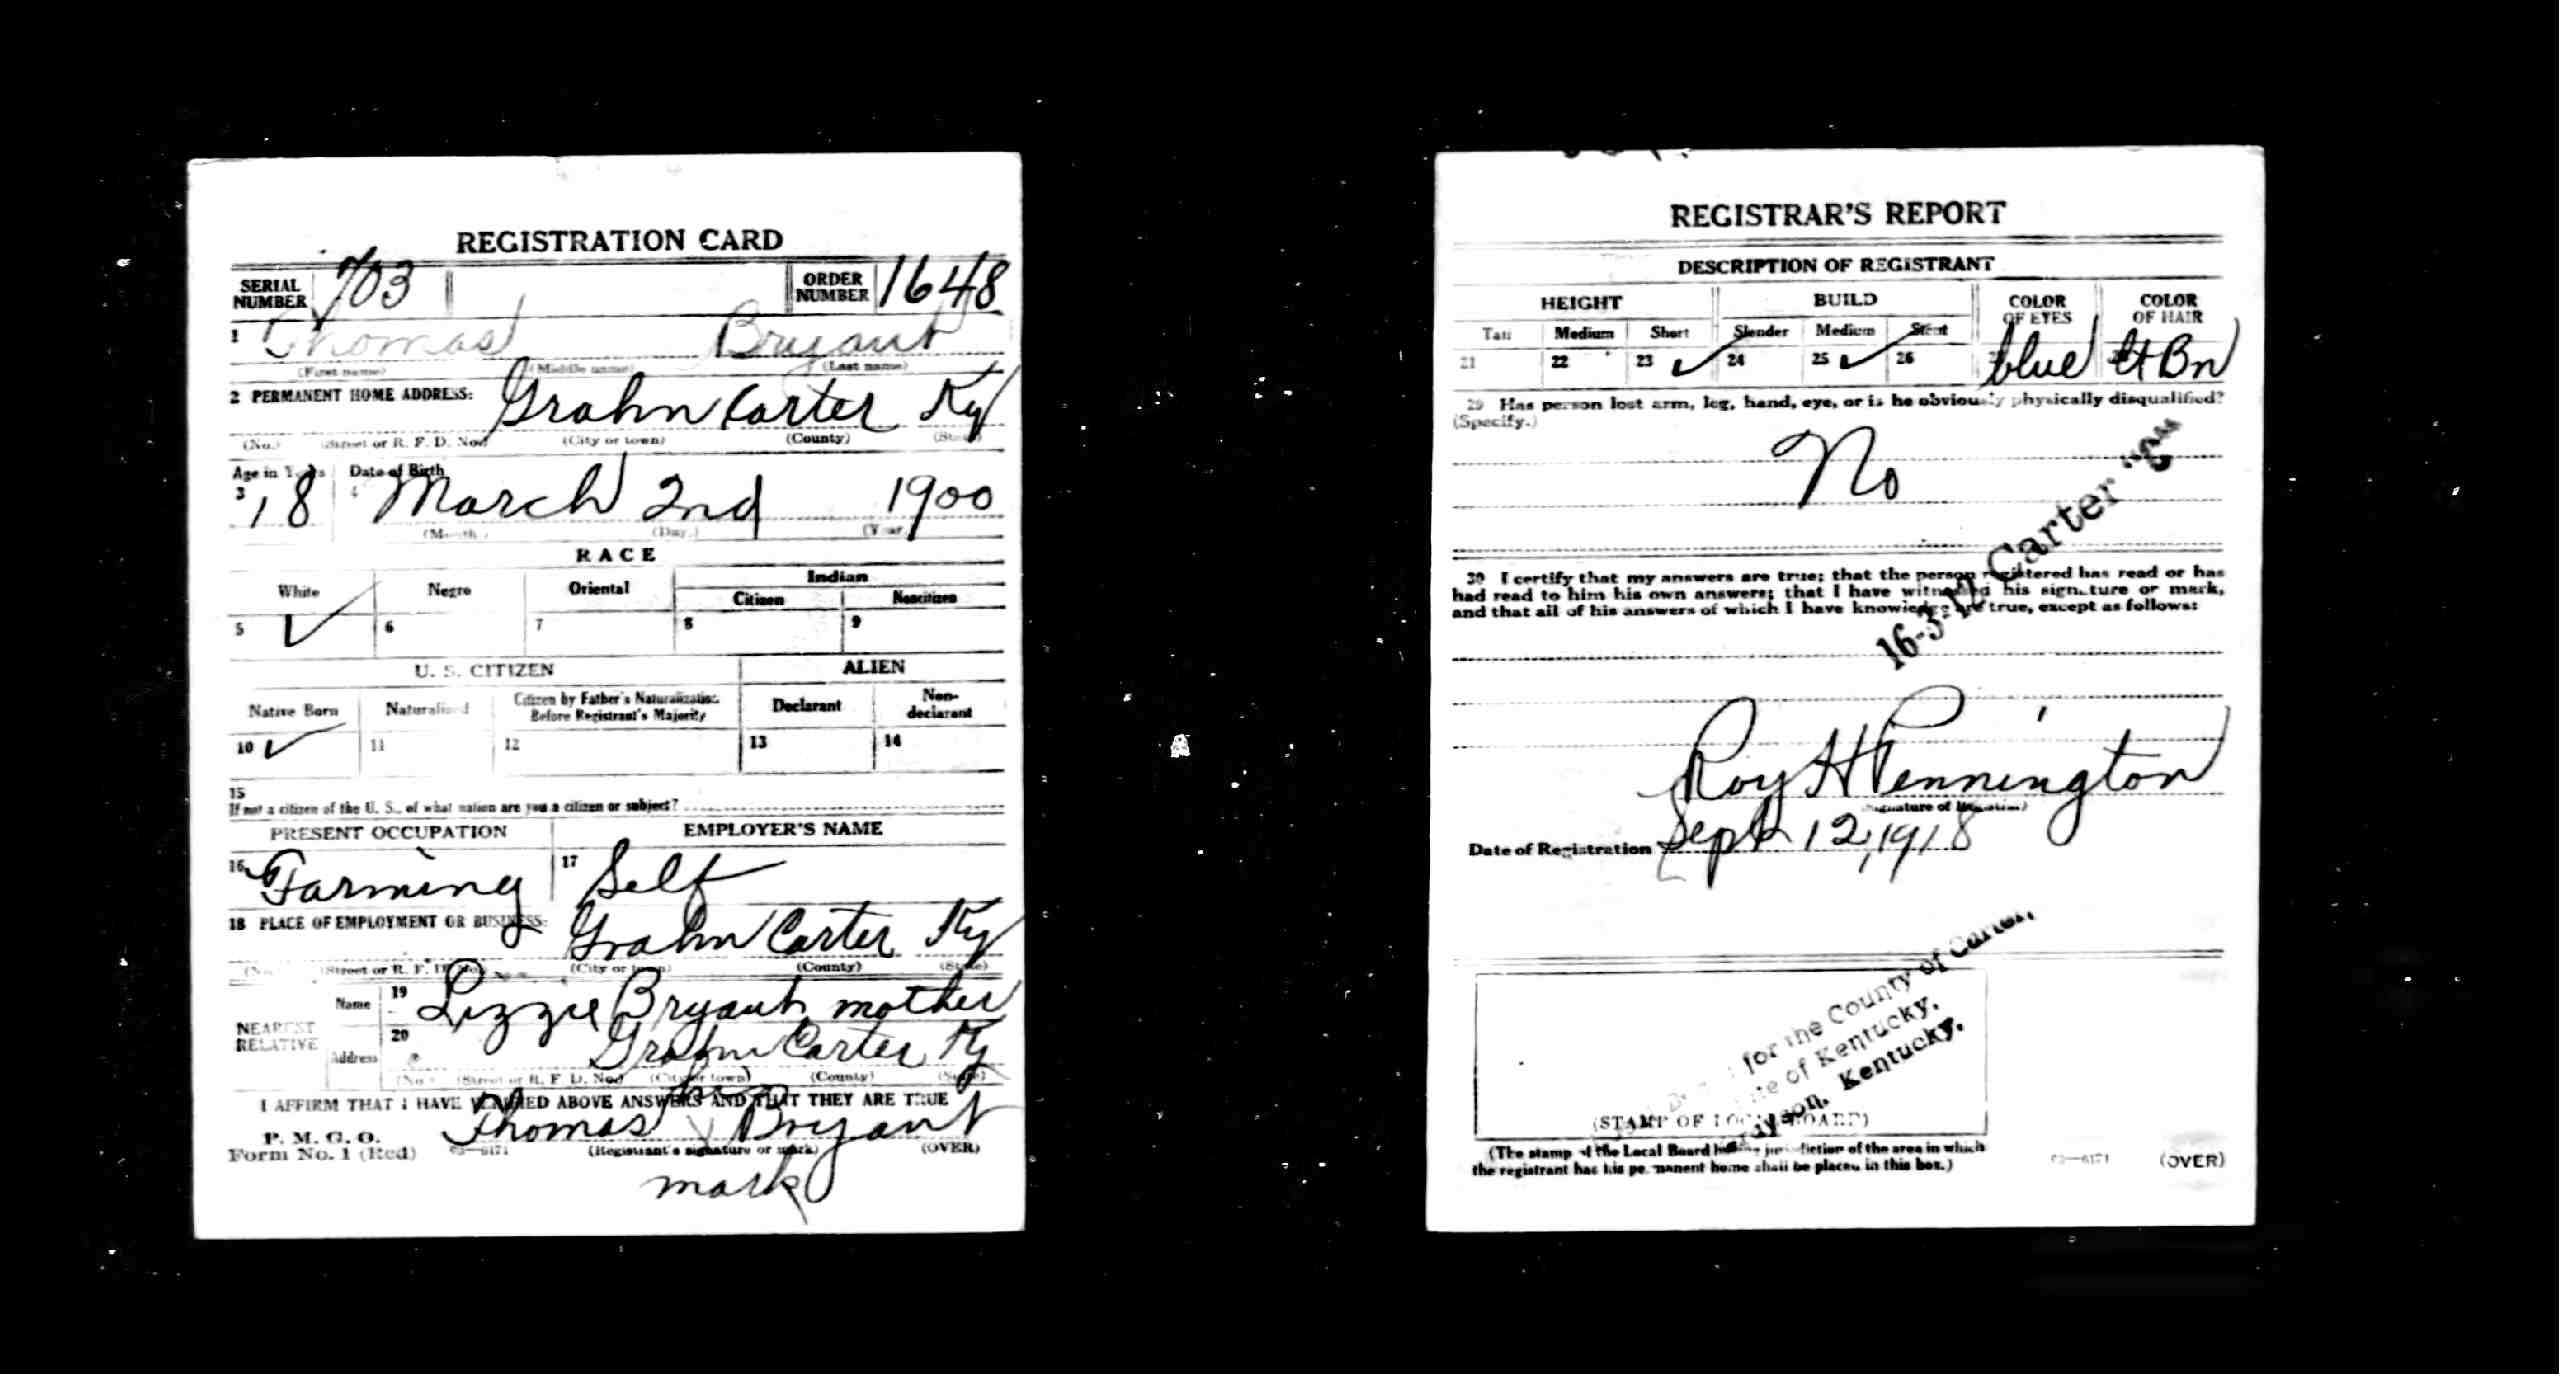 REGISTRATION CARD
SERIAL NUMBER 703 ORDER NUMBER 1648
1 Thomas Bryant
(First name) (Middle name) (Last name)
2 PERMANENT HOME ADDRESS: Grahn Carter Ky
(No.) (Street or R. F. D. No.) (City or town) (County) (State)
Age in Years Date of Birth
3 18 4 March 2nd 1900
(Month.) (Day.) (Year.)
RACE
White Negro Oriental Indian
Citizen Noncitizen
5 ✓ 6 7 8 9
U. S. CITIZEN ALIEN
Native Born Naturalized Citizen by Father's Naturalization Before Registrant's Majority Declarant Non-declarant
10 ✓ 11 12 13 14
15
If not a citizen of the U. S., of what nation are you a citizen or subject?
PRESENT OCCUPATION EMPLOYER'S NAME
16 Farming 17 Self
18 PLACE OF EMPLOYMENT OR BUSINESS: Grahn Carter Ky
(No.) (Street or R. F. D. No.) (City or town) (County) (State)
NEAREST RELATIVE
Name 19 Lizzie Bryant mother
Address 20 Grahn Carter Ky
(No.) (Street or R. F. D. No.) (City or town) (County) (State)
I AFFIRM THAT I HAVE VERIFIED ABOVE ANSWERS AND THAT THEY ARE TRUE
P. M. G. O.
Form No. 1 (Red) 03—6171
his
Thomas X Bryant
(Registrant's signature or mark) (OVER)
mark
REGISTRAR'S REPORT
DESCRIPTION OF REGISTRANT
HEIGHT BUILD COLOR OF EYES COLOR OF HAIR
Tall Medium Short Slender Medium Stout
21 22 23 ✓ 24 25 ✓ 26 blue Lt Bn
29 Has person lost arm, leg, hand, eye, or is he obviously physically disqualified?
(Specify.)
No
16-3-12 Carter "C"
30 I certify that my answers are true; that the person registered has read or has
had read to him his own answers; that I have witnessed his signature or mark,
and that all of his answers of which I have knowledge are true, except as follows:
Roy H Pennington
(Signature of Registrar)
Date of Registration Sept 12, 1918
for the County of Carter,
State of Kentucky.
Grayson, Kentucky.
(STAMP OF LOCAL BOARD)
(The stamp of the Local Board having jurisdiction of the area in which
the registrant has his permanent home shall be placed in this box.)
03—6171 (OVER)